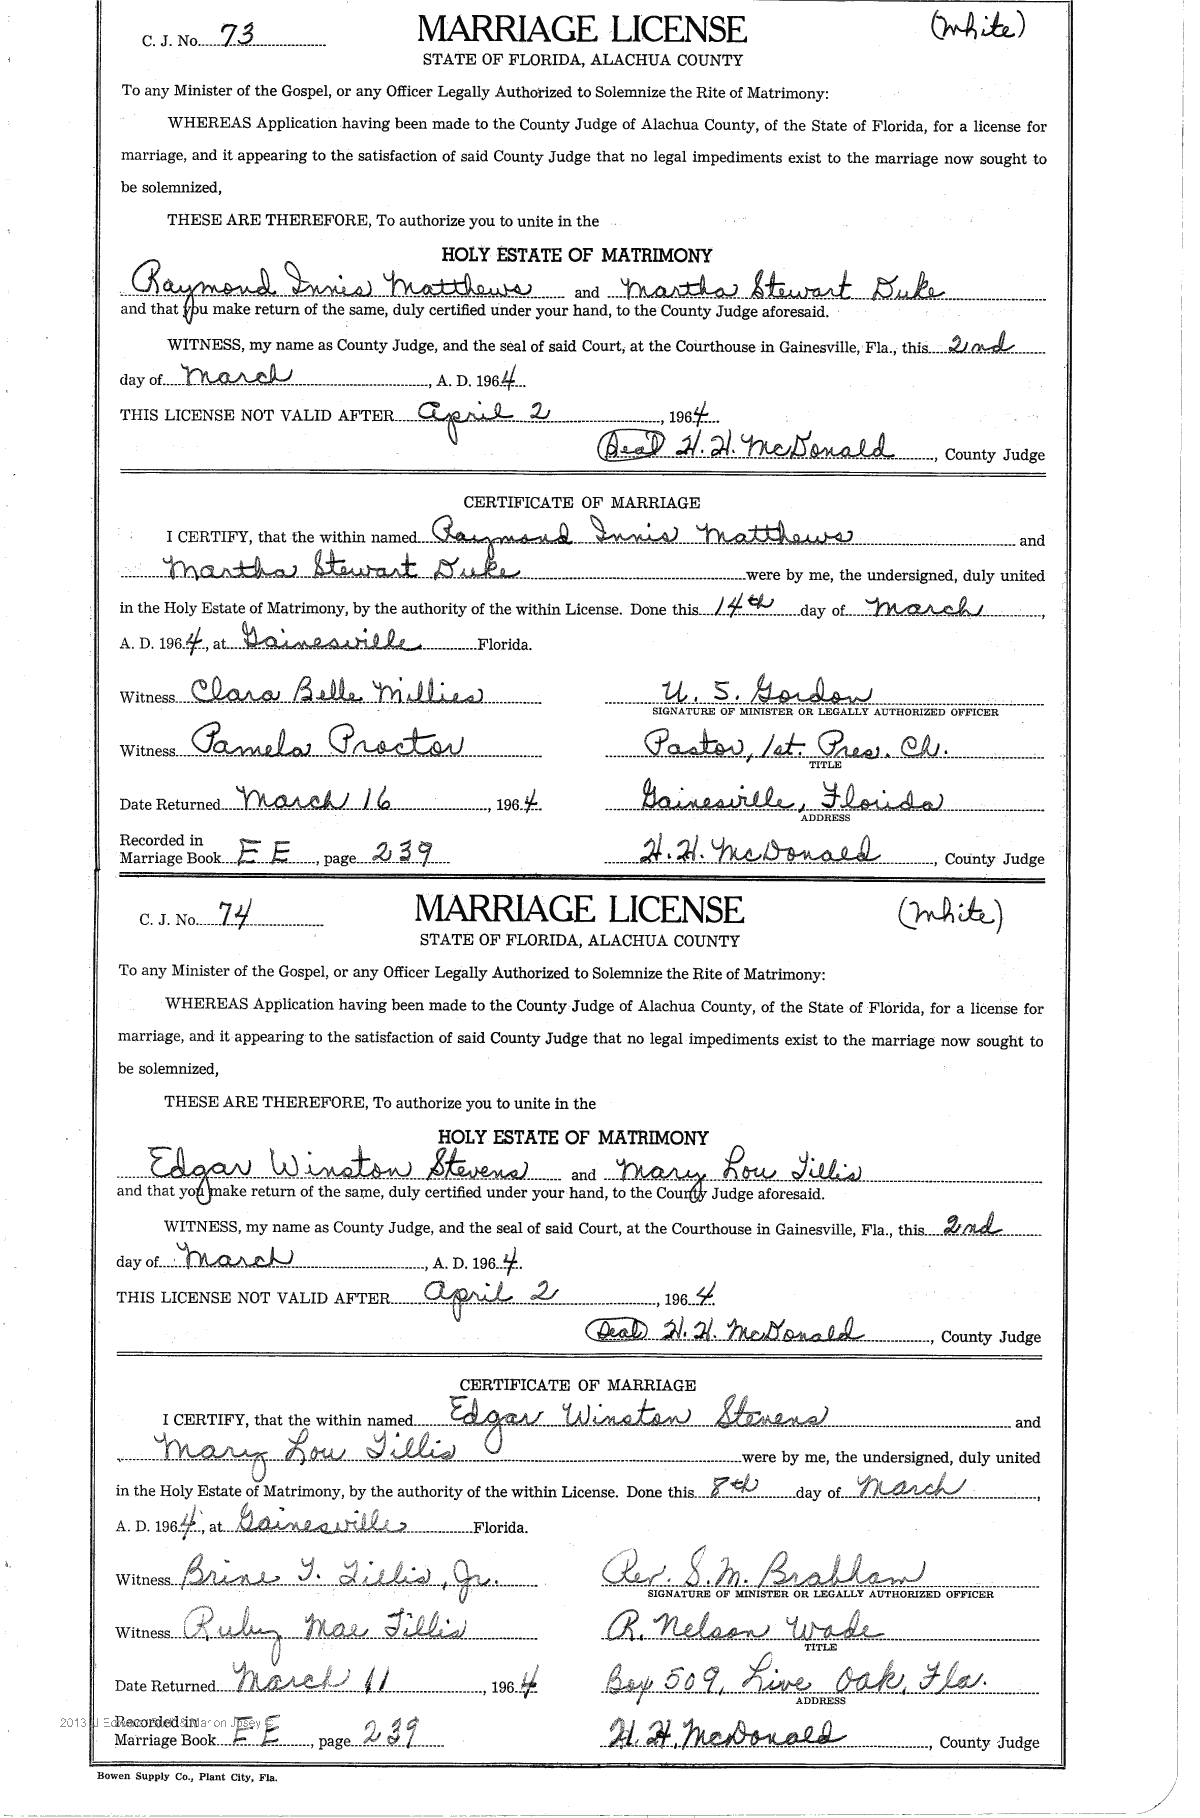 C. J. No. 73 MARRIAGE LICENSE (White)
STATE OF FLORIDA, ALACHUA COUNTY
To any Minister of the Gospel, or any Officer Legally Authorized to Solemnize the Rite of Matrimony:
WHEREAS Application having been made to the County Judge of Alachua County, of the State of Florida, for a license for
marriage, and it appearing to the satisfaction of said County Judge that no legal impediments exist to the marriage now sought to
be solemnized,
THESE ARE THEREFORE, To authorize you to unite in the
HOLY ESTATE OF MATRIMONY
Raymond Innis Matthews and Martha Stewart Duke
and that you make return of the same, duly certified under your hand, to the County Judge aforesaid.
WITNESS, my name as County Judge, and the seal of said Court, at the Courthouse in Gainesville, Fla., this 2nd
day of March, A. D. 1964
THIS LICENSE NOT VALID AFTER April 2, 1964
(Seal) H. H. McDonald, County Judge
CERTIFICATE OF MARRIAGE
I CERTIFY, that the within named Raymond Innis Matthews and
Martha Stewart Duke were by me, the undersigned, duly united
in the Holy Estate of Matrimony, by the authority of the within License. Done this 14th day of March,
A. D. 1964, at Gainesville Florida.
Witness Clara Belle Millies U. S. Gordon
SIGNATURE OF MINISTER OR LEGALLY AUTHORIZED OFFICER
Witness Pamela Proctor Pastor, 1st. Pres. Ch.
TITLE
Date Returned March 16, 1964 Gainesville, Florida
ADDRESS
Recorded in
Marriage Book E E, page 239 H. H. McDonald, County Judge
C. J. No. 74 MARRIAGE LICENSE (White)
STATE OF FLORIDA, ALACHUA COUNTY
To any Minister of the Gospel, or any Officer Legally Authorized to Solemnize the Rite of Matrimony:
WHEREAS Application having been made to the County Judge of Alachua County, of the State of Florida, for a license for
marriage, and it appearing to the satisfaction of said County Judge that no legal impediments exist to the marriage now sought to
be solemnized,
THESE ARE THEREFORE, To authorize you to unite in the
HOLY ESTATE OF MATRIMONY
Edgar Winston Stevens and Mary Lou Tillis
and that you make return of the same, duly certified under your hand, to the County Judge aforesaid.
WITNESS, my name as County Judge, and the seal of said Court, at the Courthouse in Gainesville, Fla., this 2nd
day of March, A. D. 1964.
THIS LICENSE NOT VALID AFTER April 2, 1964
(Seal) H. H. McDonald, County Judge
CERTIFICATE OF MARRIAGE
I CERTIFY, that the within named Edgar Winston Stevens and
Mary Lou Tillis were by me, the undersigned, duly united
in the Holy Estate of Matrimony, by the authority of the within License. Done this 8th day of March,
A. D. 1964, at Gainesville Florida.
Witness Brine T. Tillis, Jr. Rev. S. M. Brabham
SIGNATURE OF MINISTER OR LEGALLY AUTHORIZED OFFICER
Witness Ruby Mae Tillis R. Nelson Wade
TITLE
Date Returned March 11, 1964 Box 509, Live Oak, Fla.
ADDRESS
2013 Recorded in
Marriage Book E E, page 239 H. H. McDonald, County Judge
Bowen Supply Co., Plant City, Fla.